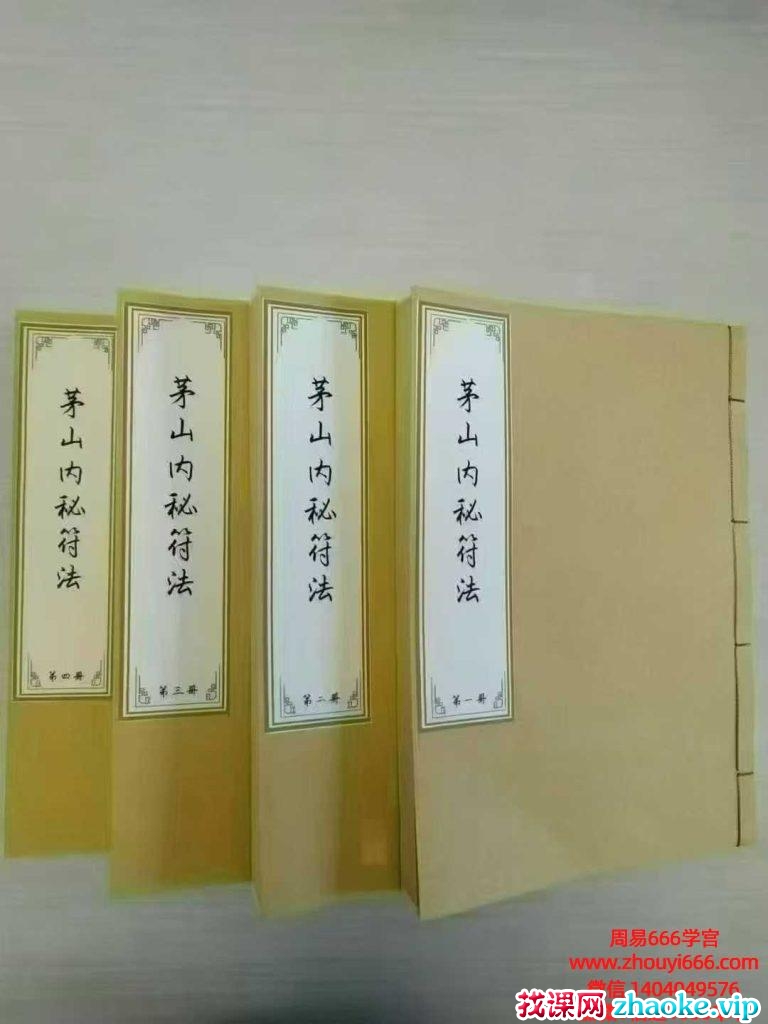 茅山内秘符法
第四册
茅山内秘符法
第三册
茅山内秘符法
第二册
茅山内秘符法
第一册
周易666学宫
www.zhouyi666.com
微信 1404049576
找课网zhaoke.vip